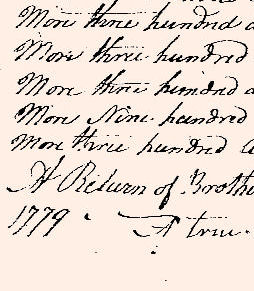 More three hundred a
More three hundred
More three hundred a
More Nine hundred
More three hundred a
A Return of Brothe
1779 A true